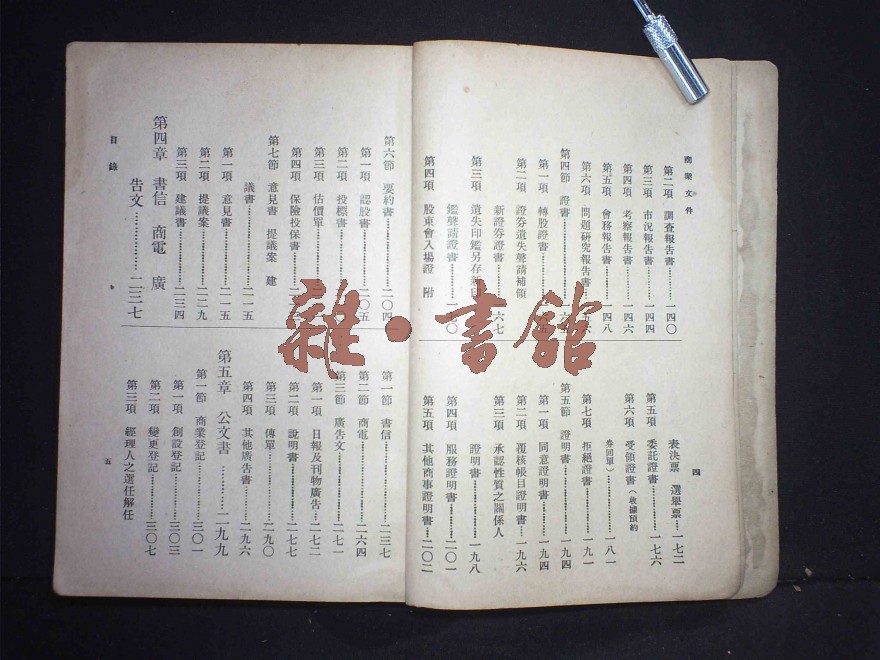 商業文件
第二項 調查報告書………一四〇
第三項 市況報告書………一四四
第四項 考察報告書………一四六
第五項 會務報告書………一四八
第六項 問題研究報告書
第四節 證書
第一項 轉股證書
第二項 證券遺失聲請補領
新證券證書………一六七
第三項 遺失印鑑另存新印
鑑聲請證書
第四項 股東會入場證 附
表決票 選舉票……一七二
第五項 委託證書………一七六
第六項 受領證書(收據預約
券回單)………一八一
第七項 拒絕證書………一九一
第五節 證明書………一九四
第一項 同意證明書………一九四
第二項 覆核帳目證明書……一九六
第三項 承認性質之關係人
證明書………一九八
第四項 服務證明書………二〇一
第五項 其他商事證明書……二〇二
四
第六節 要約書………二〇四
第一項 認股書………二〇五
第二項 投標書
第三項 估價單
第四項 保險投保書
第七節 意見書 提議案 建
議書………二一五
第一項 意見書………二一五
第二項 提議案………二二九
第三項 建議書………二三四
第四章 書信 商電 廣
告文………二三七
第一節 書信………二三七
第二節 商電………二六四
第三節 廣告文………二七一
第一項 日報及刊物廣告……二七二
第二項 說明書………二七七
第三項 傳單………二九〇
第四項 其他廣告書………二九六
第五章 公文書………二九九
第一節 商業登記………三〇一
第一項 創設登記………三〇三
第二項 變更登記………三〇七
第三項 經理人之選任解任
目錄
五
雜·書館